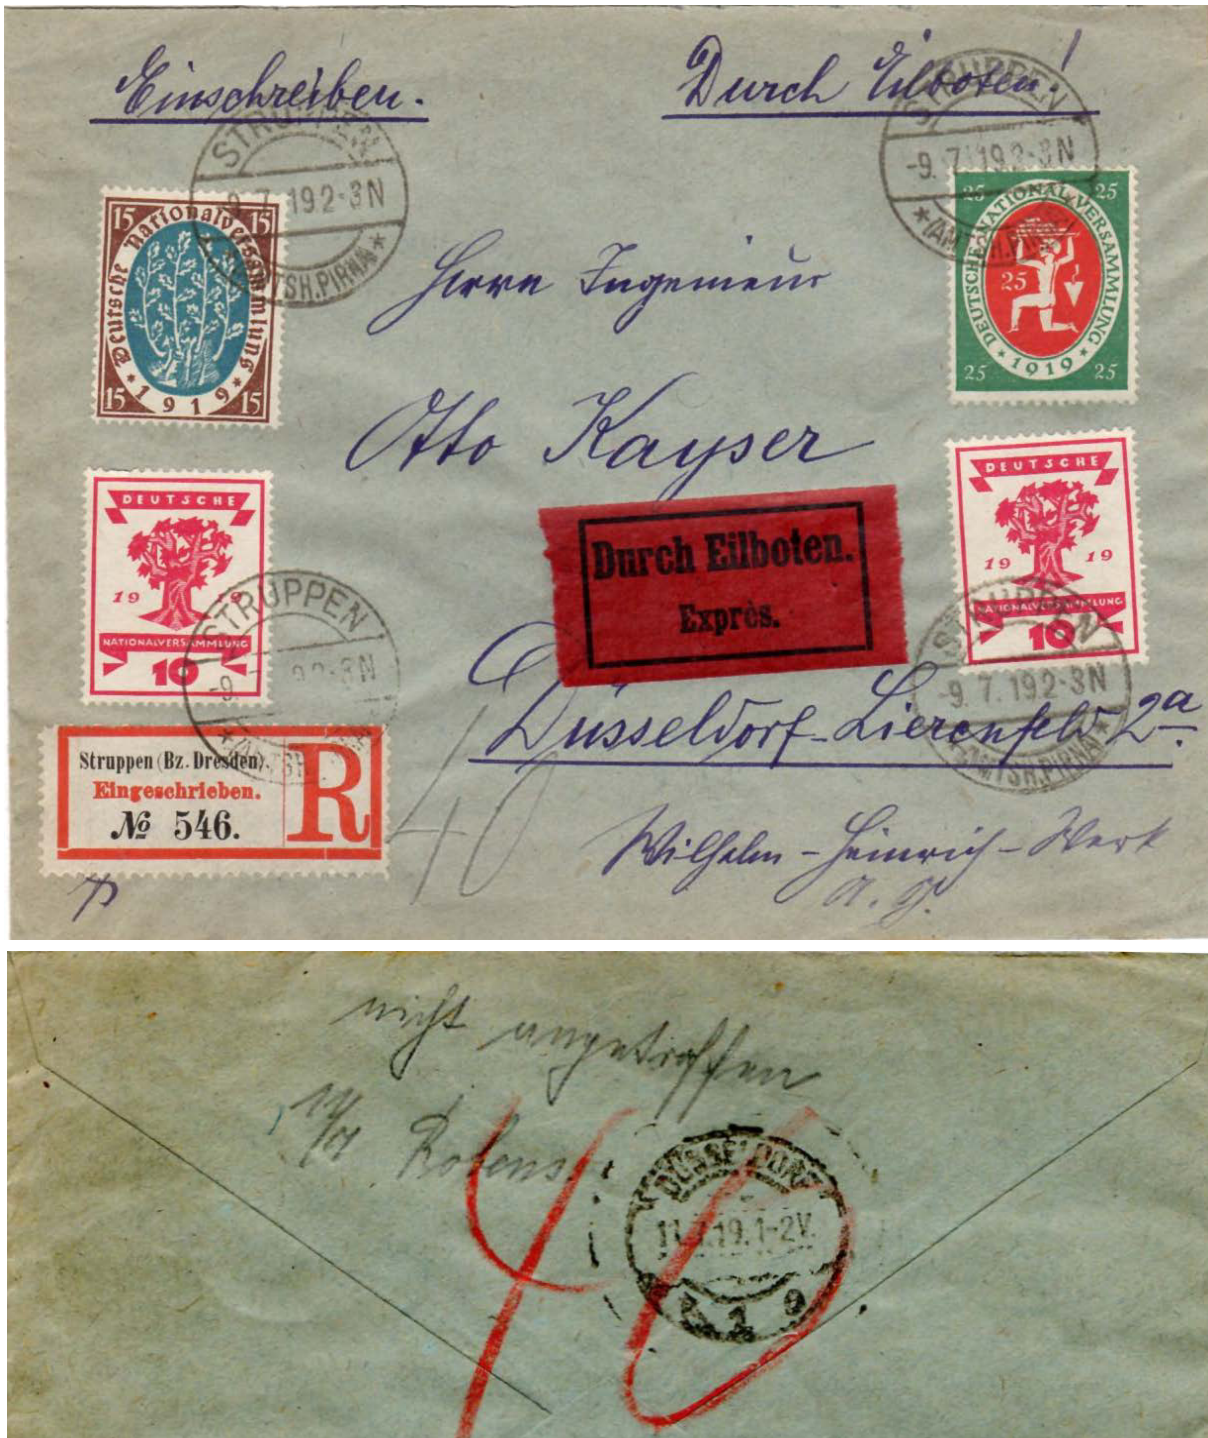 Einschreiben.
Durch Eilboten!
STRUPPEN
-9. 7. 19 2-3 N
* (AMTSH. PIRNA) *
STRUPPEN
-9. 7. 19 2-3 N
* (AMTSH. PIRNA) *
15 15
Deutsche Nationalversammlung
15 * 1919 * 15
25 25
DEUTSCHE NATIONALVERSAMMLUNG
25
25 * 1919 * 25
Herrn Ingenieur
Otto Kayser
DEUTSCHE
19 19
NATIONALVERSAMMLUNG
10
DEUTSCHE
19 19
NATIONALVERSAMMLUNG
10
Durch Eilboten.
Exprès.
STRUPPEN
-9. 7. 19 2-3 N
* (AMTSH.
STRUPPEN
-9. 7. 19 2-3 N
* (AMTSH. PIRNA) *
Düsseldorf-Lierenfeld 2a.
Struppen (Bz. Dresden).
Eingeschrieben.
№ 546.
R
40
Wilhelm-Heinrich-Werk
A. G.
nicht angetroffen
DÜSSELDORF
11.7.19. 1-2 V.
40